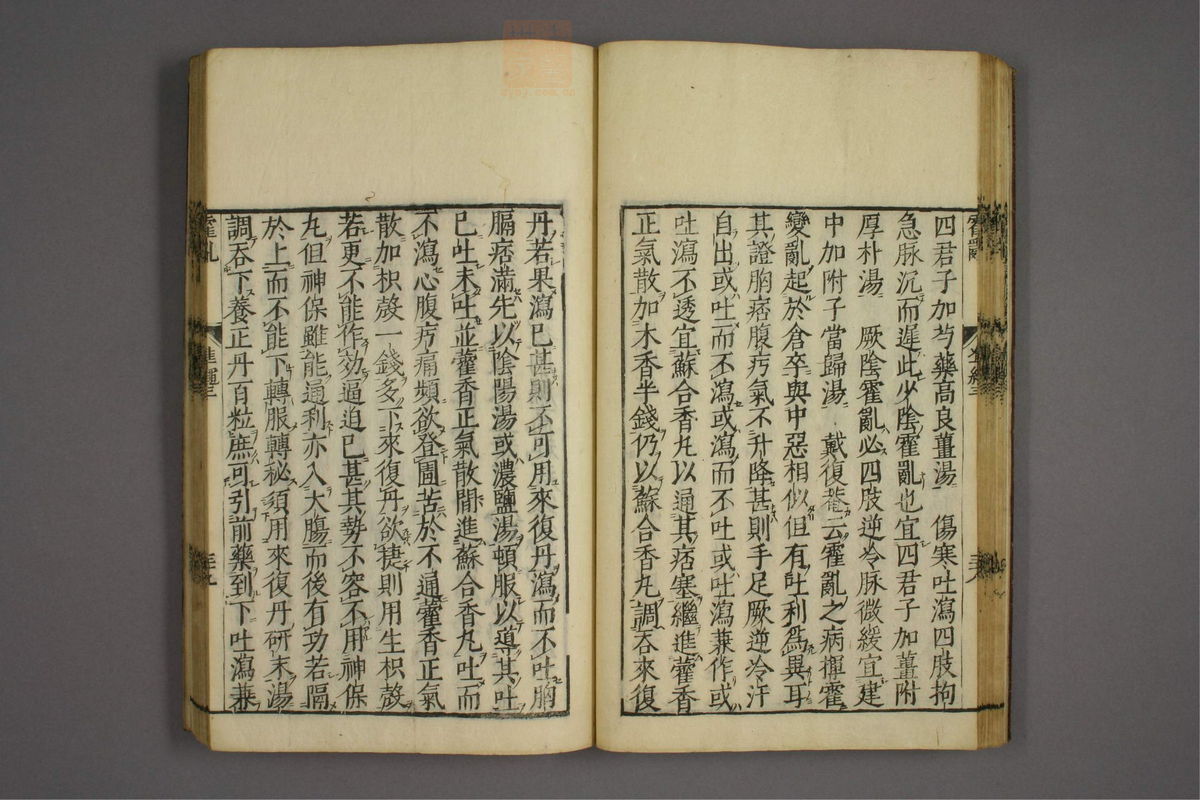 四君子加芍藥高良薑湯　傷寒吐瀉四肢拘
急脉沉而遲此少陰霍亂也宜四君子加薑附
厚朴湯　厥陰霍亂必四肢逆冷脉微緩宜建
中加附子當歸湯　戴復菴云霍亂之病揮霍
變亂起於倉卒與中惡相似但有吐利爲異耳
其證胸痞腹疞氣不升降甚則手足厥逆冷汗
自出或吐而不瀉或瀉而不吐或吐瀉兼作或
吐瀉不透宜蘇合香丸以通其痞塞繼進藿香
正氣散加木香半錢仍以蘇合香丸調吞來復
丹若果瀉已甚則不可用來復丹瀉而不吐胸
膈痞滿先以陰陽湯或濃鹽湯頓服以導其吐
已吐未吐並藿香正氣散間進蘇合香丸吐而
不瀉心腹疞痛頻欲登圊苦於不通藿香正氣
散加枳殼一錢多下來復丹欲㨗則用生枳殼
若更不能作効逼迫已甚其勢不容不用神保
丸但神保雖能通利亦入大腸而後有功若隔
於上而不能下轉服轉秘須用來復丹研末湯
調吞下養正丹百粒庶可引前藥到下吐瀉兼
霍亂
準繩三